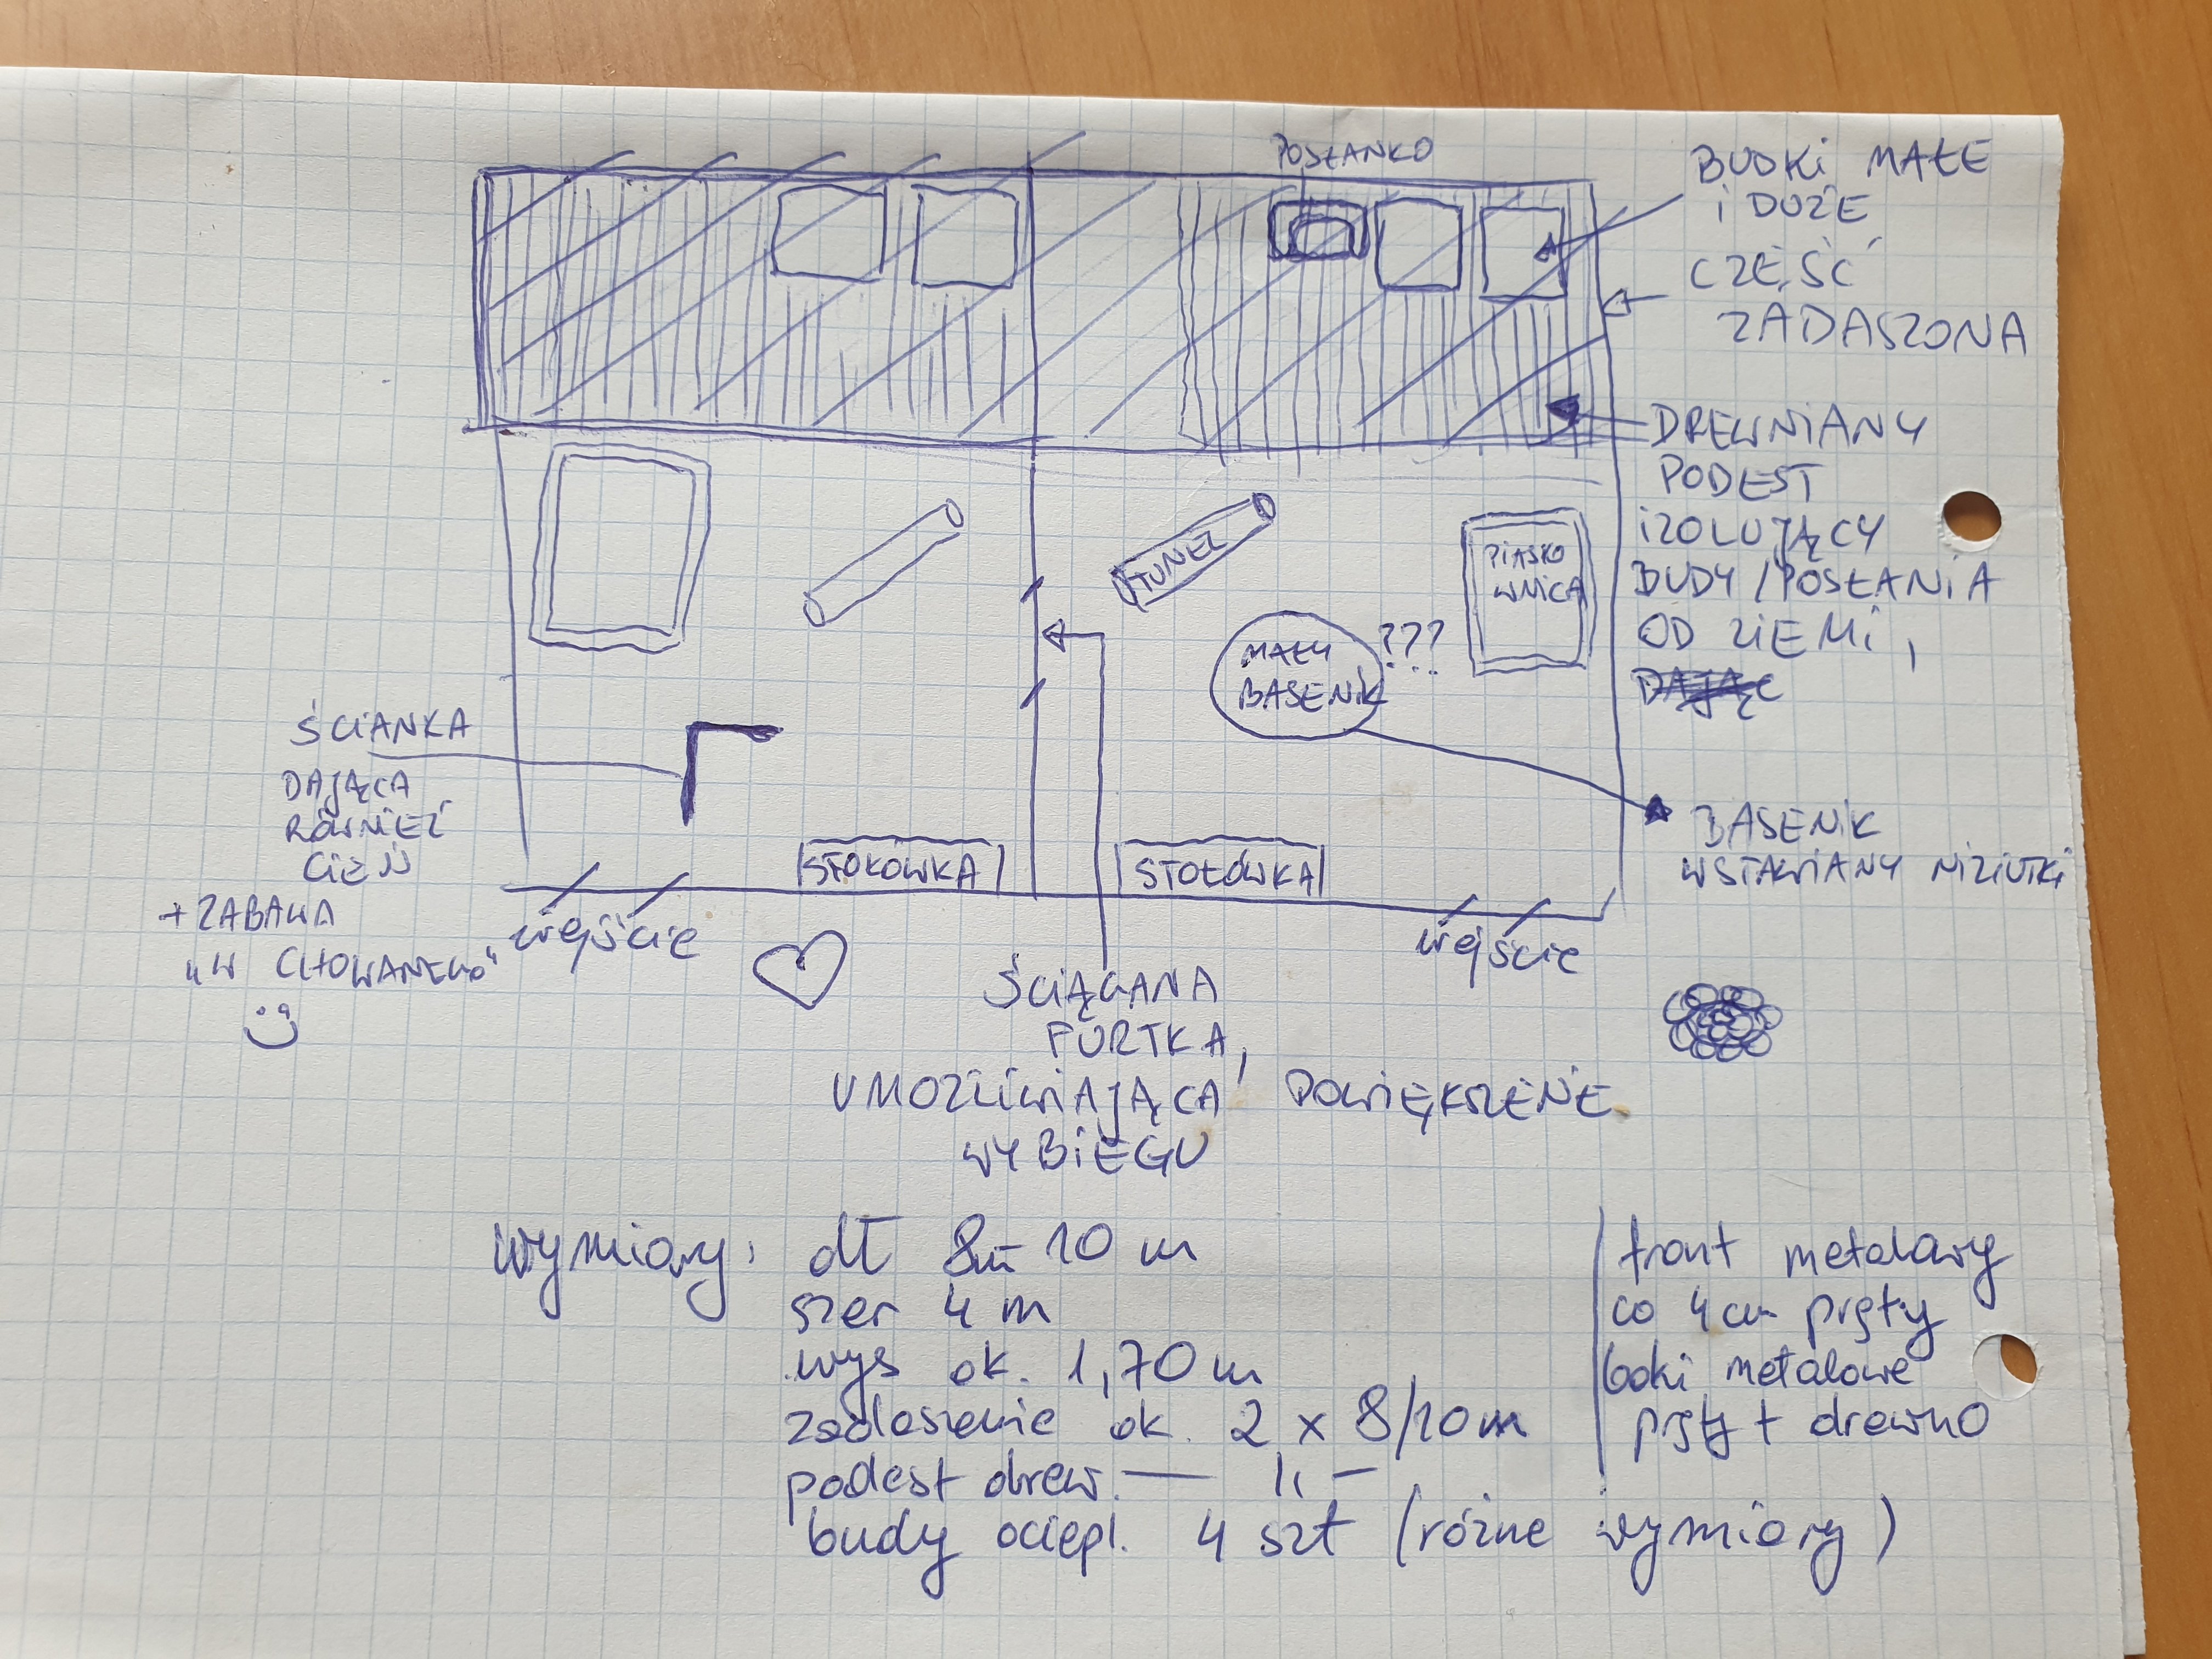 POSŁANKO
BUDKI MAŁE
i DUŻE
CZĘŚĆ
ZADASZONA
DREWNIANY
PODEST
iZOLUJĄCY
BUDY/POSŁANIA
OD ZIEMI,
DAJĄC
TUNEL
PIASKO
WNICA
MAŁY ???
BASENIK
ŚCIANKA
DAJĄCA
RÓWNIEŻ
CIEŃ
+ ZABAWA
„W CHOWANEGO"
STOŁÓWKA
STOŁÓWKA
BASENIK
WSTAWIANY NIZIUTKI
wejście
wejście
ŚCIĄGANA
FURTKA,
UMOŻLIWIAJĄCA POWIĘKSZENIE
WYBIEGU
wymiary: dł 8m - 10 m
szer 4 m
wys ok. 1,70 m
zadaszenie ok. 2 x 8/10 m
podest drew. — 11 —
budy ociepl. 4 szt (różne wymiary)
front metalowy
co 4 cm pręty
boki metalowe
pręty + drewno